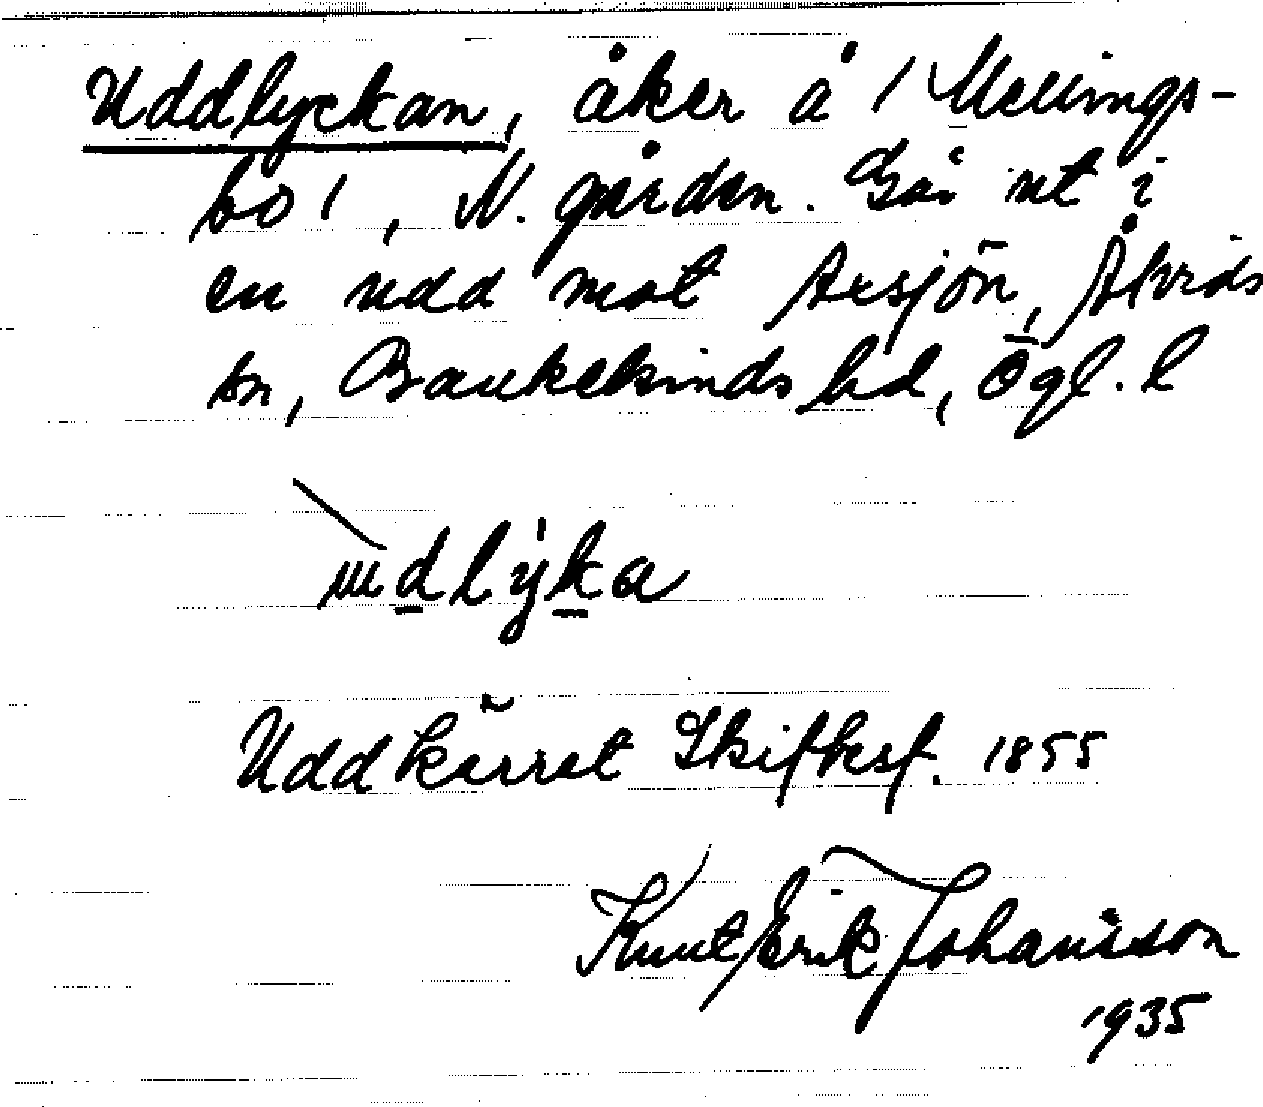 Uddlyckan, åker å 1 Mellings-
bo 1, N. gården. Går ut i
en udd mot Axsjön, Åtvids
sn, Bankekinds hd, Ögl. l
udlyka
Uddkärret Skifksf. 1855
Knut Erik Johansson
1935